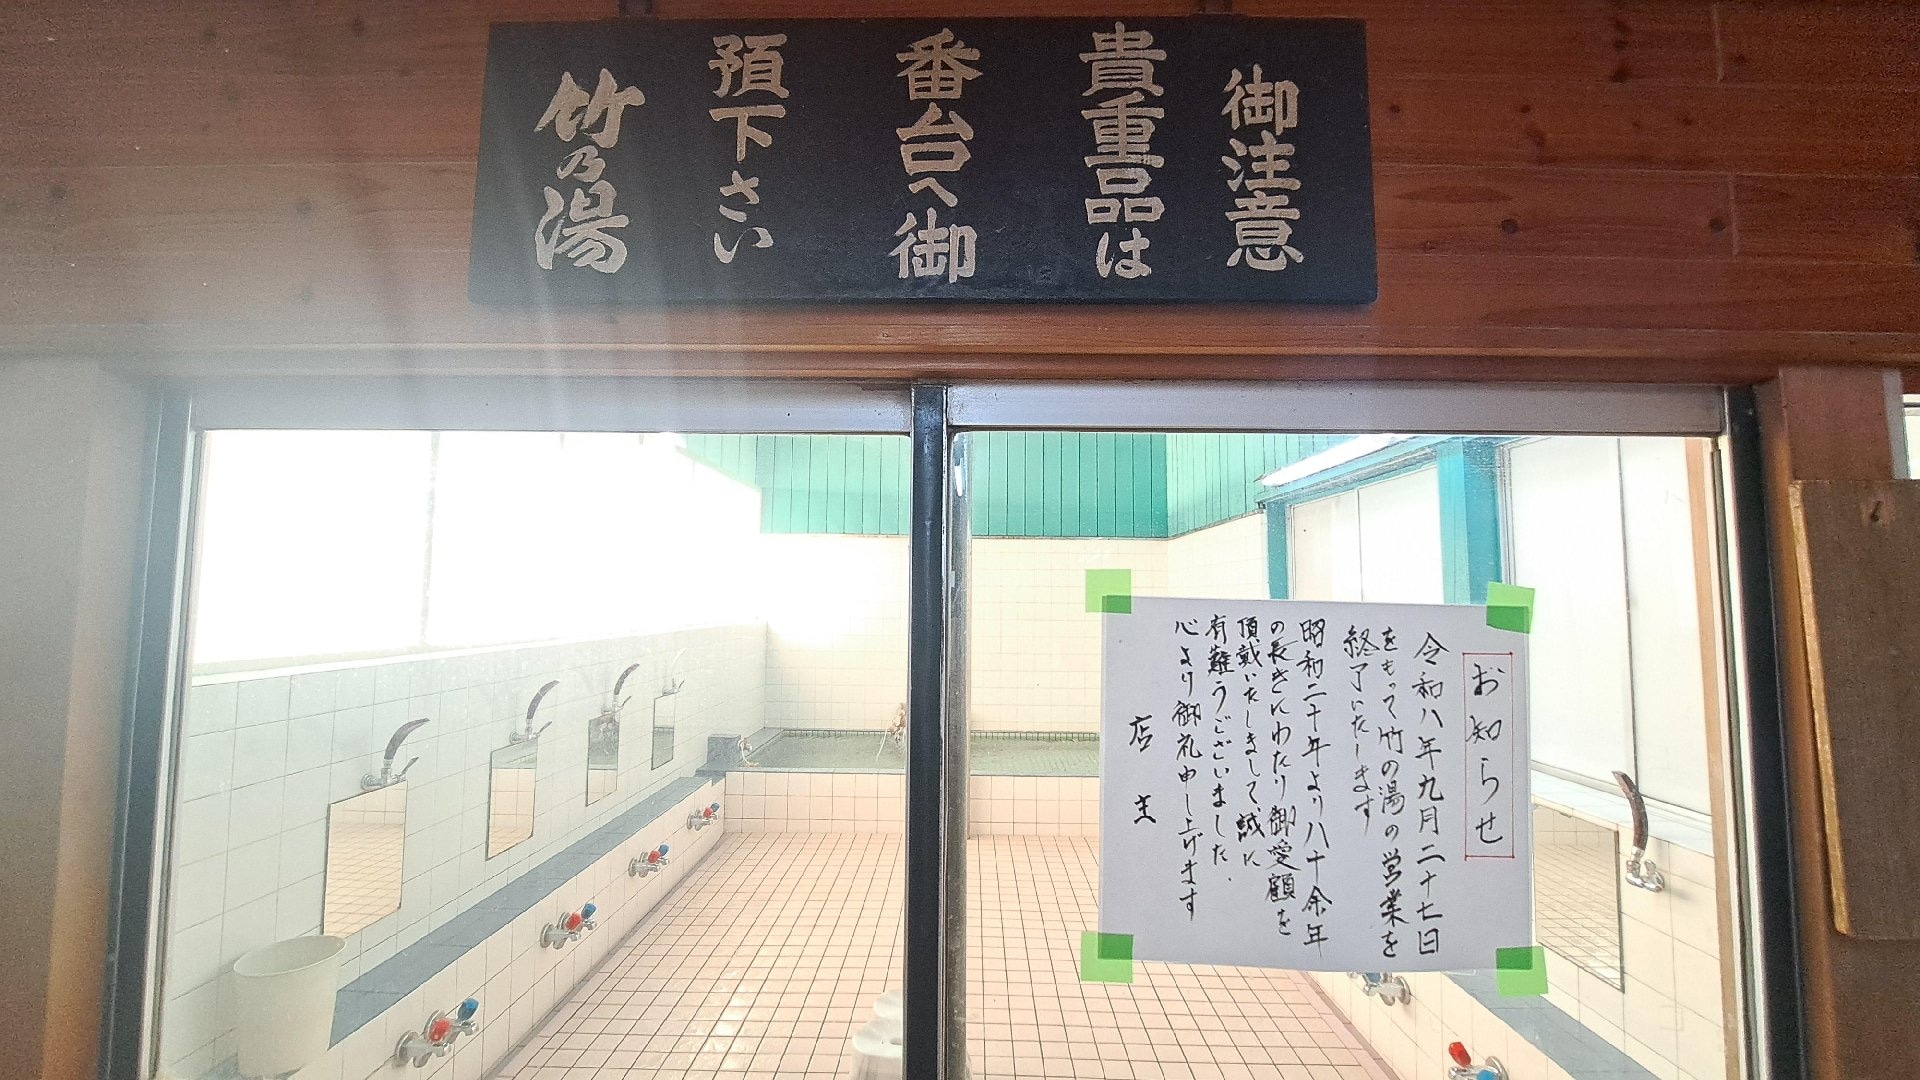 御注意
貴重品は
番台へ御
預下さい
竹乃湯
お知らせ
令和八年九月二十七日
をもって竹の湯の営業を
終了いたします
昭和二十年より八十余年
の長きにわたり御愛顧を
頂戴いたしまして、誠に
有難うございました、
心より御礼申し上げます
店主